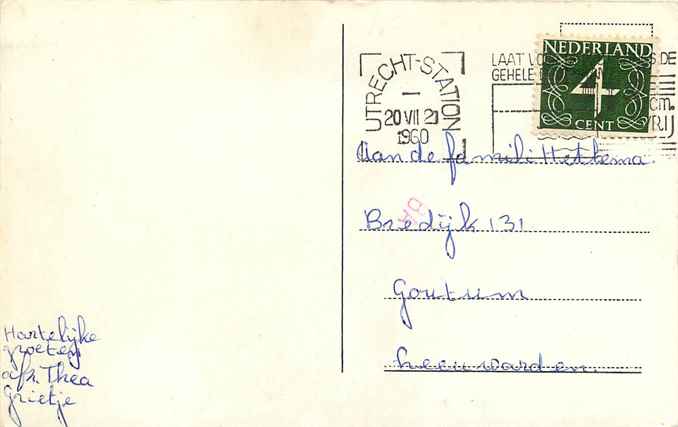 UTRECHT-STATION
20 VII 21
1960
LAAT VO
S DE
GEHELE
N
cm.
VRIJ
NEDERLAND
4
CENT
Aan de famili Hettema.
Bredijk 131
Goutum
Leeuwarden.
DA
Hartelijke
groeten
afz. Thea
Grietje